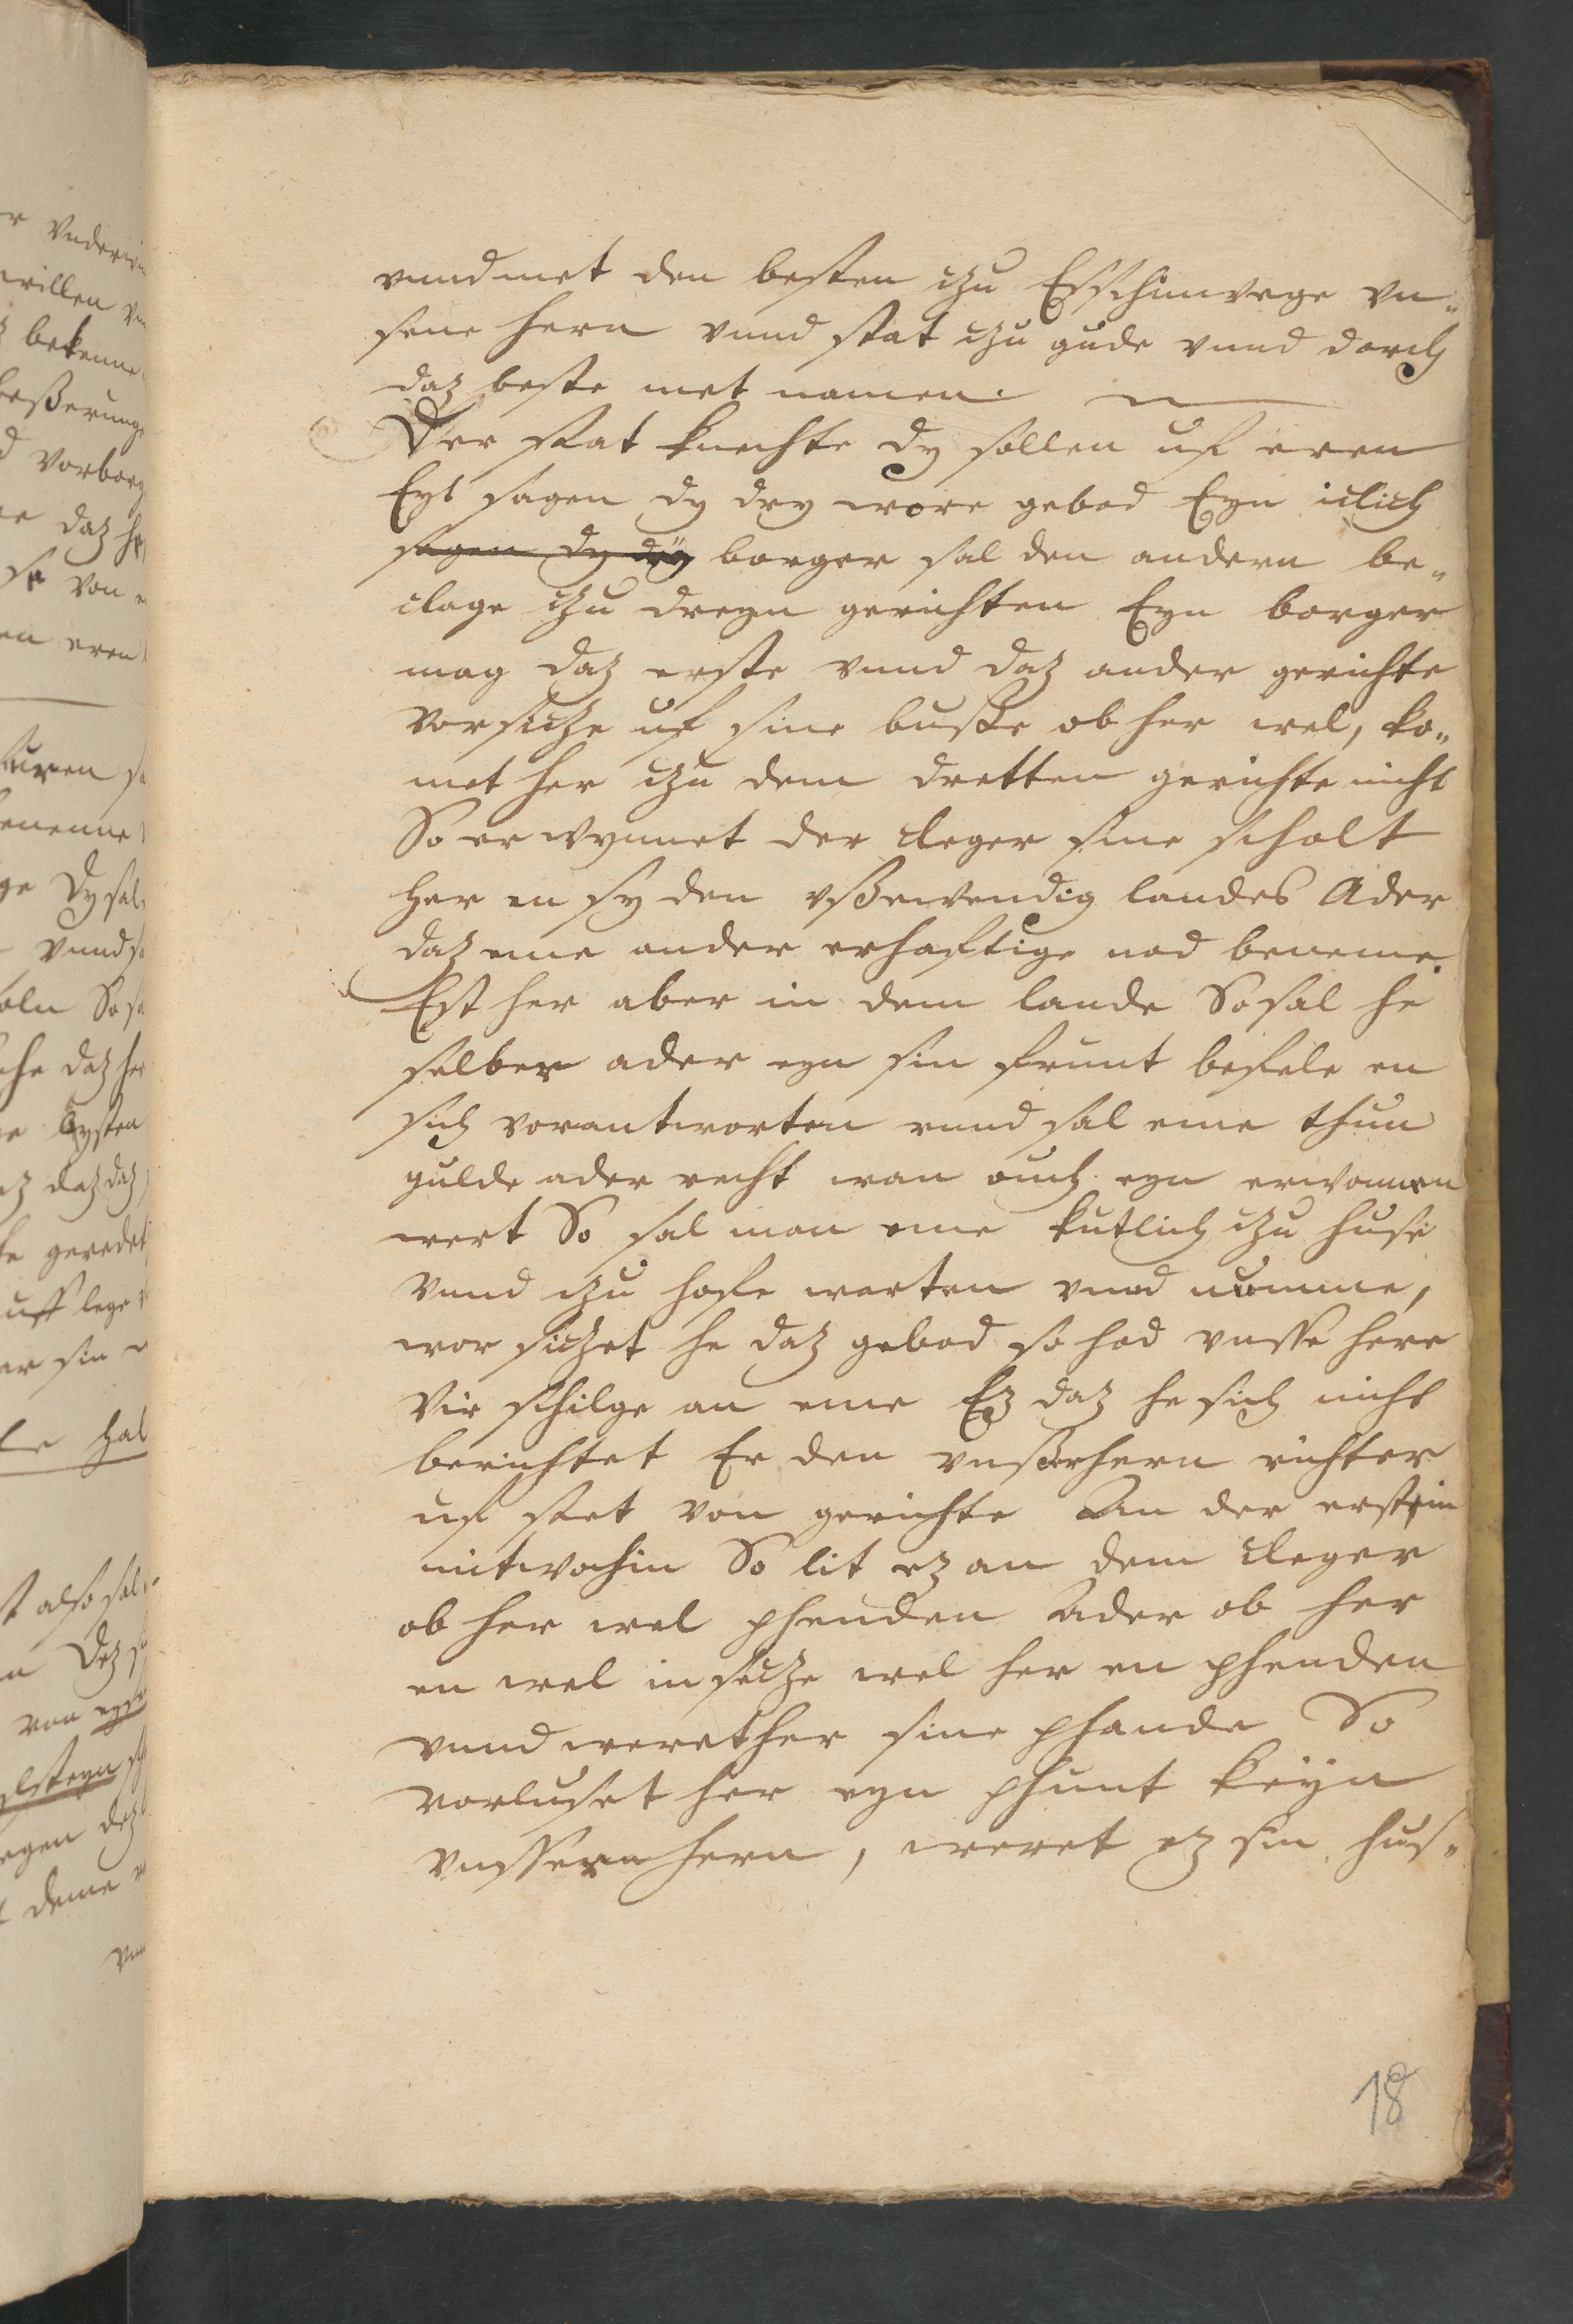 vnnd met den besten czu Eschinwege vn„
sene hern vnnd stat czu gude vnnd dorch
daz beste met namen.
Der stat knechte dy sollen uf eren
Eyt sagen dy dry wore gebod Eyn iclich
sagen dy dry borger sal den andern be„
clage czu dreyn gerichten Eyn borger
mag daz erste vnnd daz ander gerichte
vorsicze uf sine busse ob her wel, ko„
met her czu dem dretten gerichte nicht
So erwynnet der cleger sine scholt
her en sy den vßewendig landes Ader
daz eme ander erhaftige nod beneme.
Est her aber in dem lande So sal he
selber ader eyn sin frunt befele en
sich vorantworten vnnd sal eme thun
gulde ader recht wan ouch eyn erwonnen
wert So sal man eme kutlich czu huse
vnnd czu hofe warten vnnd nomme,
vor siczet he daz gebod so hod vnsse here
vir schilge an eme Ez daz he sich nicht
berichtet Er den vnsserhern richter
uf stet von gerichte An der erstin
mitwochin So lit ez an dem cleger
ob her wel phenden Ader ob her
en wel in secze wel her en phenden
vnnd weret her sine phande So
vorluset her eyn phunt keyn
vnssern hern, weret ez sin hus„
18